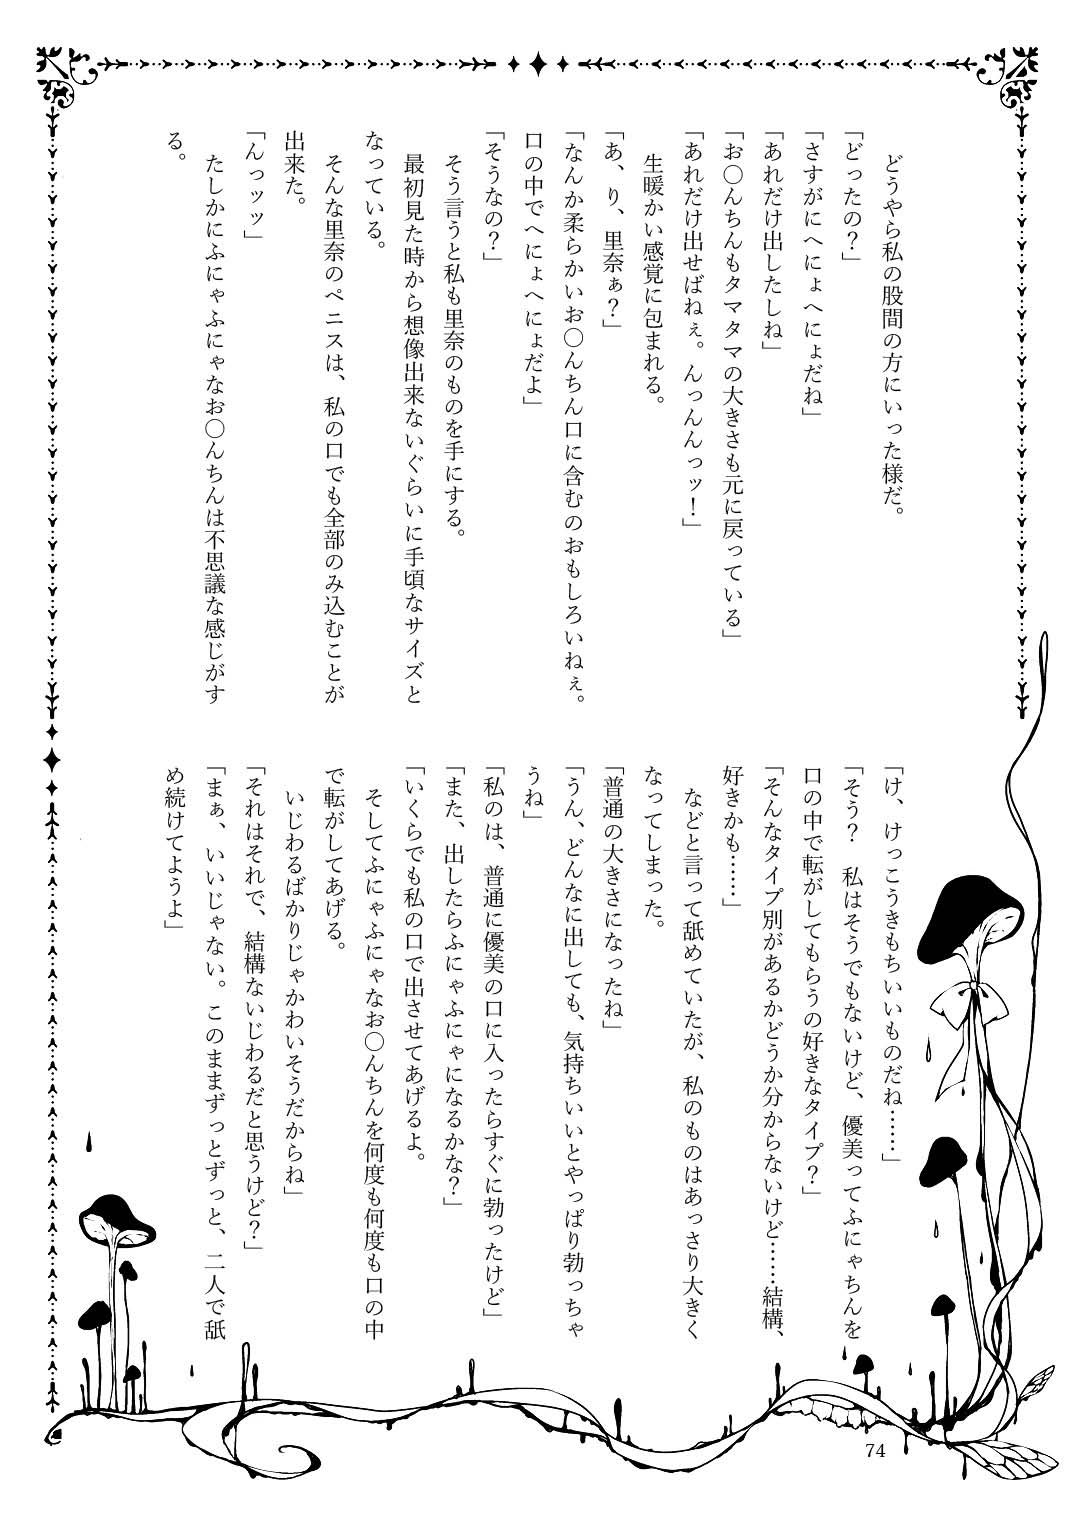 どうやら私の股間の方にいった様だ。
「どったの？」
「さすがにへにょへにょだね」
「あれだけ出したしね」
「お〇んちんもタマタマの大きさも元に戻っている」
「あれだけ出せばねぇ。んっんんっッ！」
生暖かい感覚に包まれる。
「あ、り、里奈ぁ？」
「なんか柔らかいお〇んちん口に含むのおもしろいねぇ。
口の中でへにょへにょだよ」
「そうなの？」
そう言うと私も里奈のものを手にする。
最初見た時から想像出来ないぐらいに手頃なサイズと
なっている。
そんな里奈のペニスは、私の口でも全部のみ込むことが
出来た。
「んっッッ」
たしかにふにゃふにゃなお〇んちんは不思議な感じがす
る。
「け、けっこうきもちいいものだね……」
「そう？　私はそうでもないけど、優美ってふにゃちんを
口の中で転がしてもらうの好きなタイプ？」
「そんなタイプ別があるかどうか分からないけど……結構、
好きかも……」
などと言って舐めていたが、私のものはあっさり大きく
なってしまった。
「普通の大きさになったね」
「うん、どんなに出しても、気持ちいいとやっぱり勃っちゃ
うね」
「私のは、普通に優美の口に入ったらすぐに勃ったけど」
「また、出したらふにゃふにゃになるかな？」
「いくらでも私の口で出させてあげるよ。
そしてふにゃふにゃなお〇んちんを何度も何度も口の中
で転がしてあげる。
いじわるばかりじゃかわいそうだからね」
「それはそれで、結構ないじわるだと思うけど？」
「まぁ、いいじゃない。このままずっとずっと、二人で舐
め続けてようよ」
74